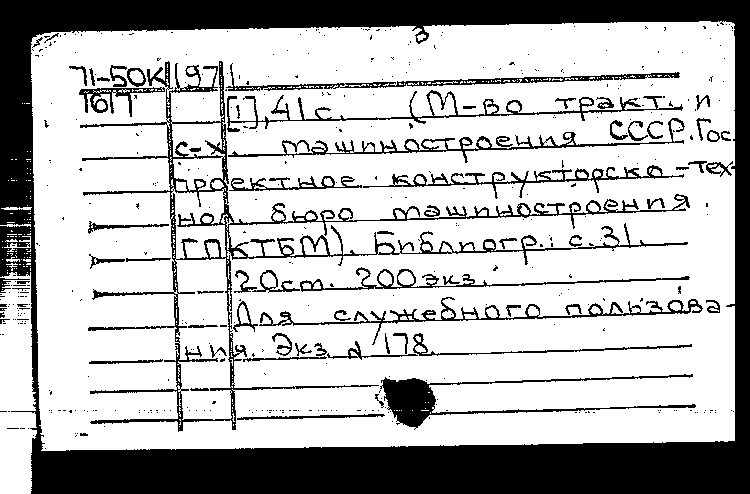 3
71-50К 1971.
1617 [1], 41 с. (М-во тракт. и
с-х. машиностроения СССР. Гос.
проектное конструкторско-тех-
нол. бюро машиностроения.
ГПКТБМ). Библиогр.: с. 31.
20 см. 200 экз.
Для служебного пользова-
ния. Экз. № 178.